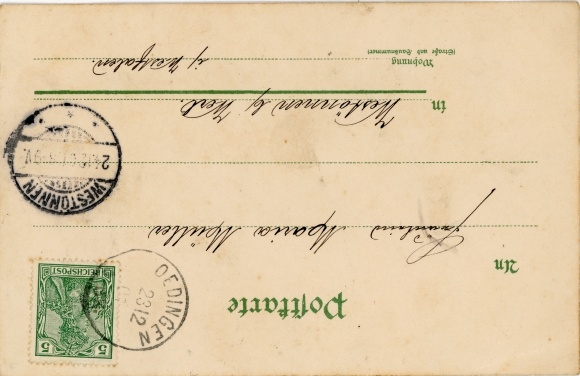 Postkarte
An
Fräulein Maria Müller
in Westönnen b/ Werl.
Wohnung
(Straße und Hausnummer)
i/ Westfalen.
5 5
REICHSPOST
OEDINGEN
23 12
WESTÖNNEN
24.12.